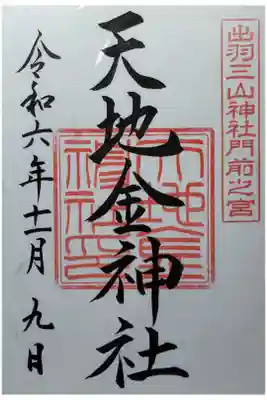 出羽三山神社門前之宮
天地金神社
令和六年十一月九日